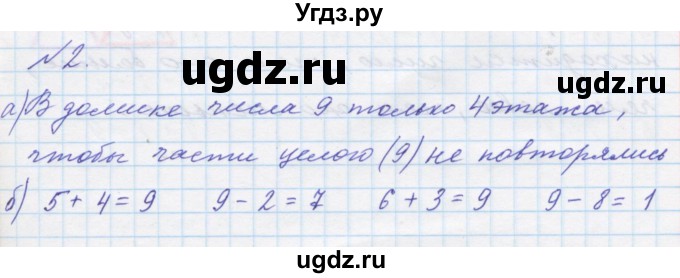 Угдз.ру
№2.
ugdz.ru ugdz.ru
а) В домике числа 9 только 4 этажа,
чтобы части целого (9) не повторялись
б) 5 + 4 = 9 9 - 2 = 7 6 + 3 = 9 9 - 8 = 1
ugdz.ru ugdz.ru